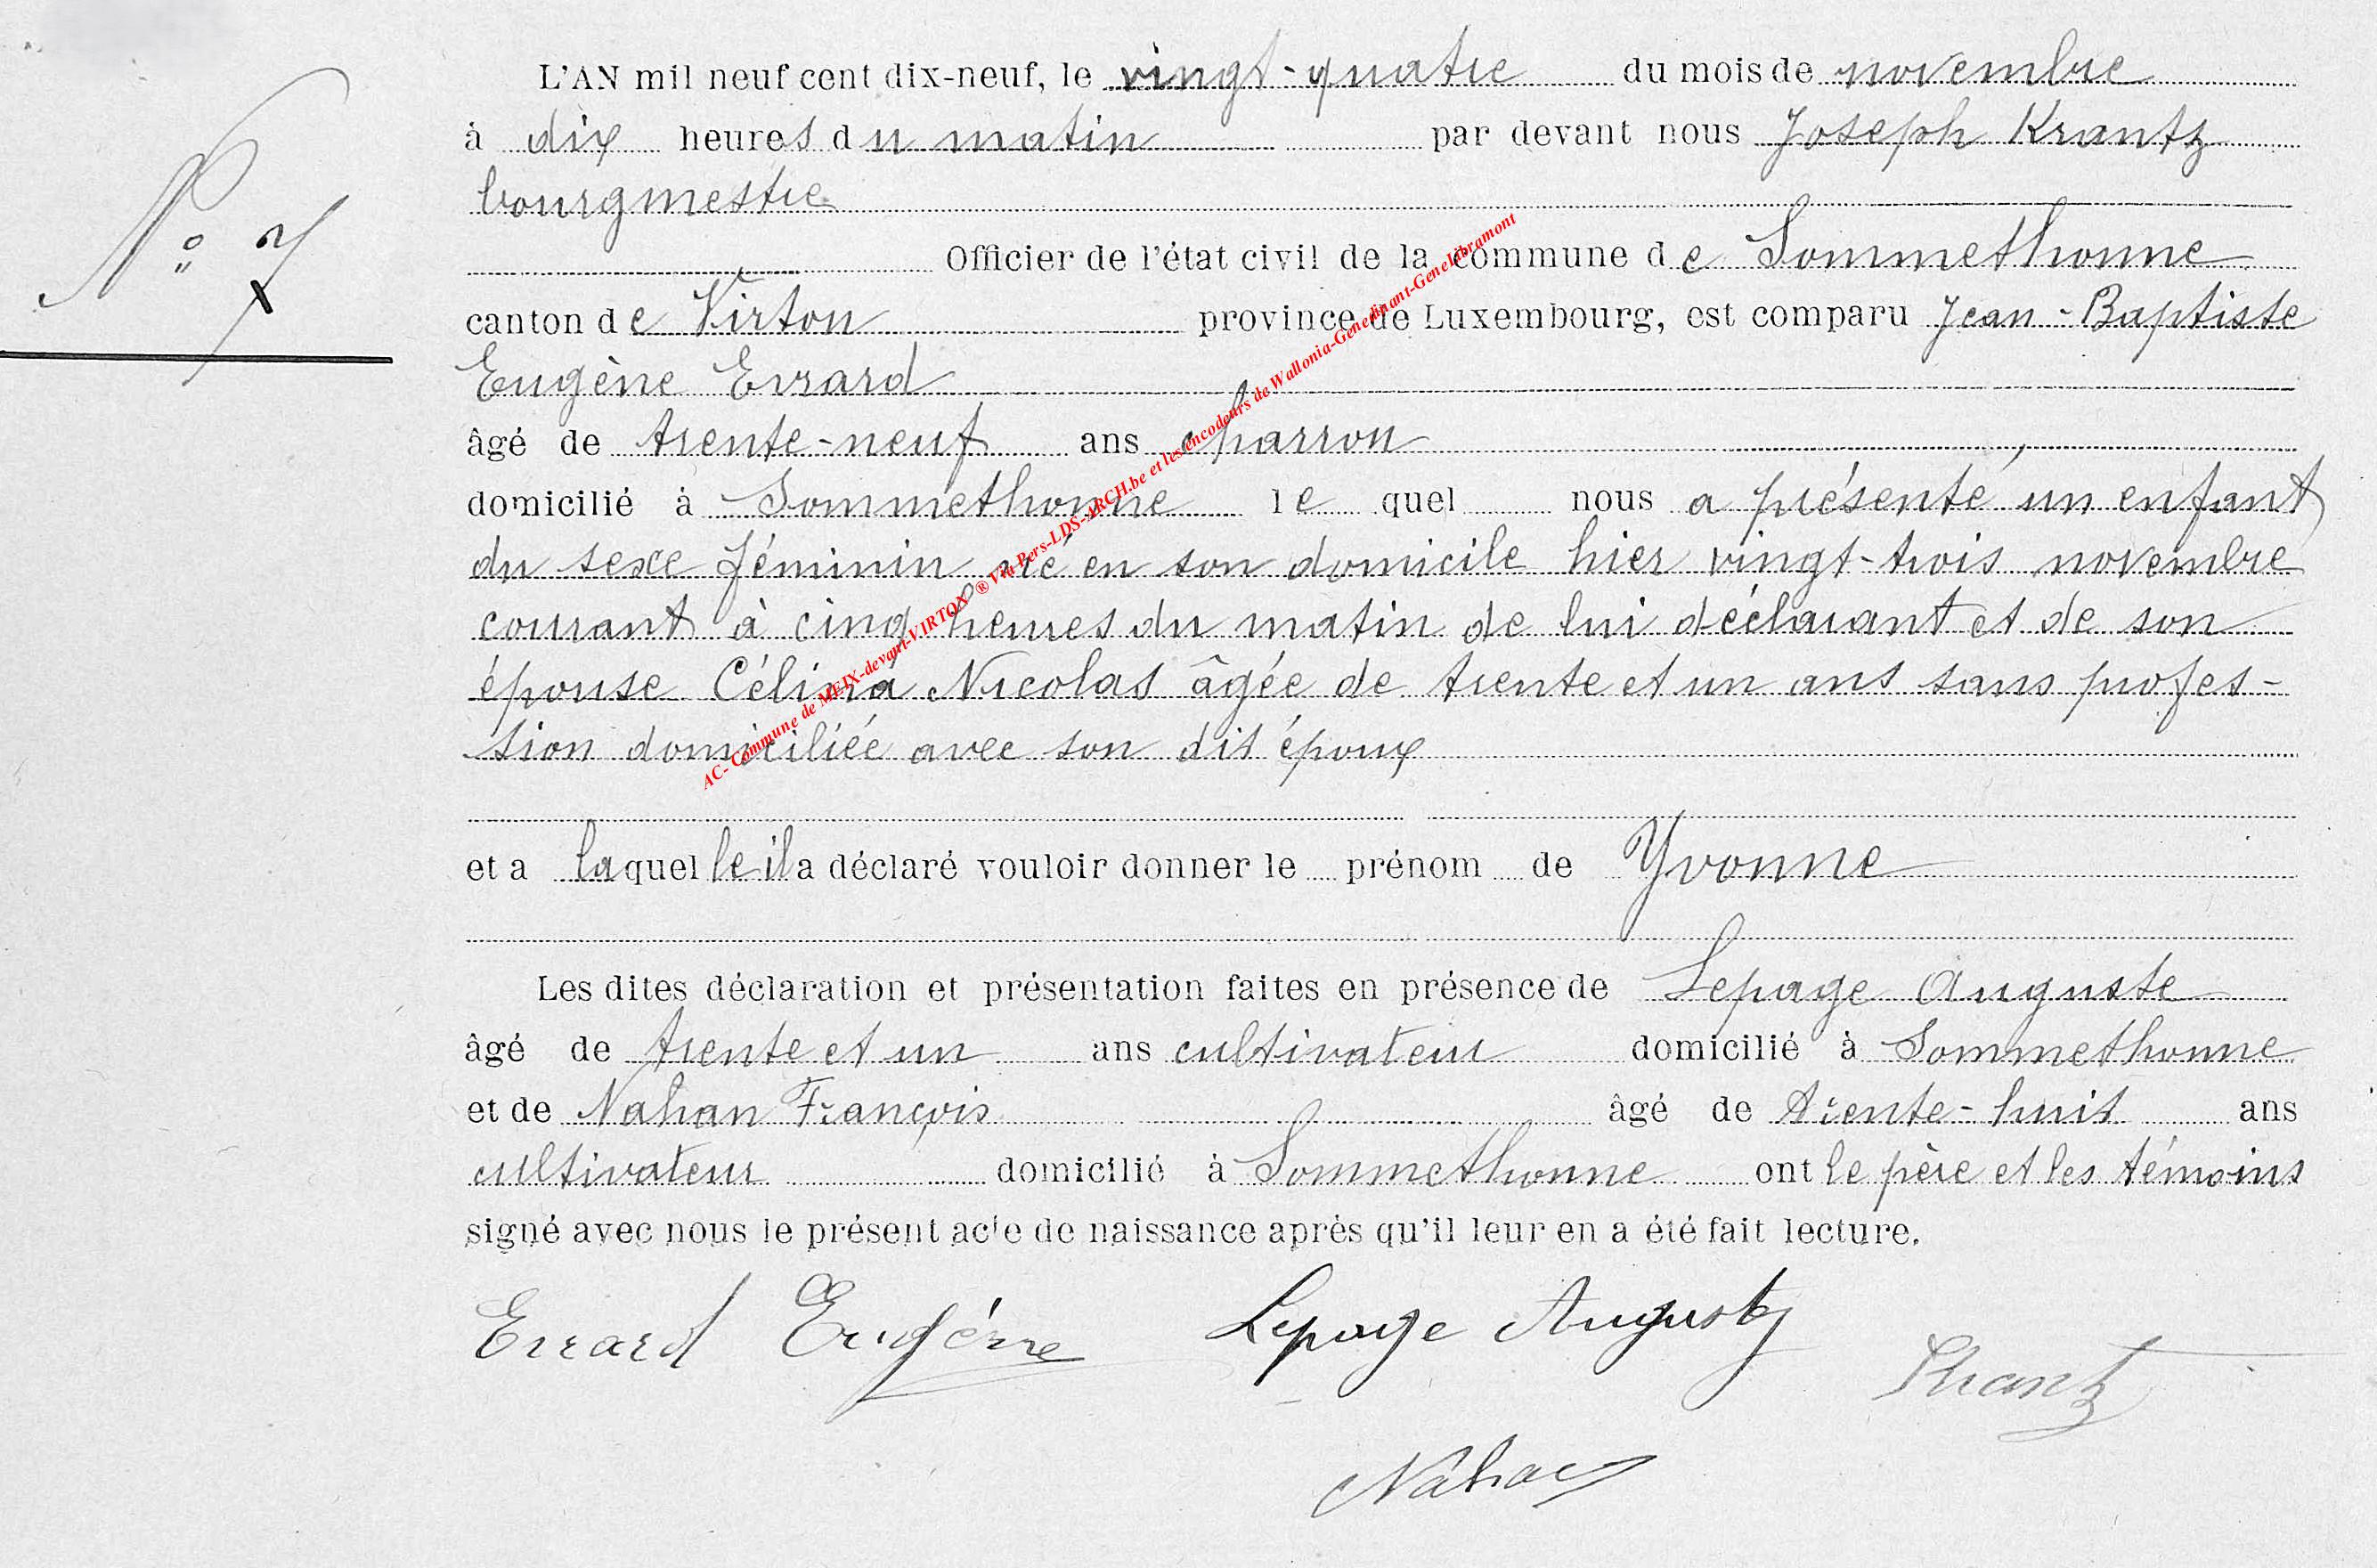 L'AN mil neuf cent dix-neuf, le vingt-quatre du mois de novembre
à dix heures du matin par devant nous Joseph Krantz
bourgmestre
Officier de l'état civil de la commune de Sommethonne
N° 7
canton de Virton province de Luxembourg, est comparu Jean-Baptiste
Eugène Evrard
âgé de trente-neuf ans charron
domicilié à Sommethonne lequel nous a présenté un enfant
du sexe féminin né en son domicile hier vingt-trois novembre
courant à cinq heures du matin de lui déclarant et de son
épouse Célina Nicolas âgée de trente et un ans sans profes-
sion domiciliée avec son dit époux
et a laquelle il a déclaré vouloir donner le prénom de Yvonne
Les dites déclaration et présentation faites en présence de Lepage Auguste
âgé de trente et un ans cultivateur domicilié à Sommethonne
et de Nahan François âgé de trente-huit ans
cultivateur domicilié à Sommethonne ont le père et les témoins
signé avec nous le présent acte de naissance après qu'il leur en a été fait lecture.
Evrard Eugène Lepage Auguste Krantz
Nahan
AC- Commune de MEIX-devant-VIRTON ® Via Pers-LDS-ARCH.be et les encodeurs de Wallonia-Genedinant-Genelibramont